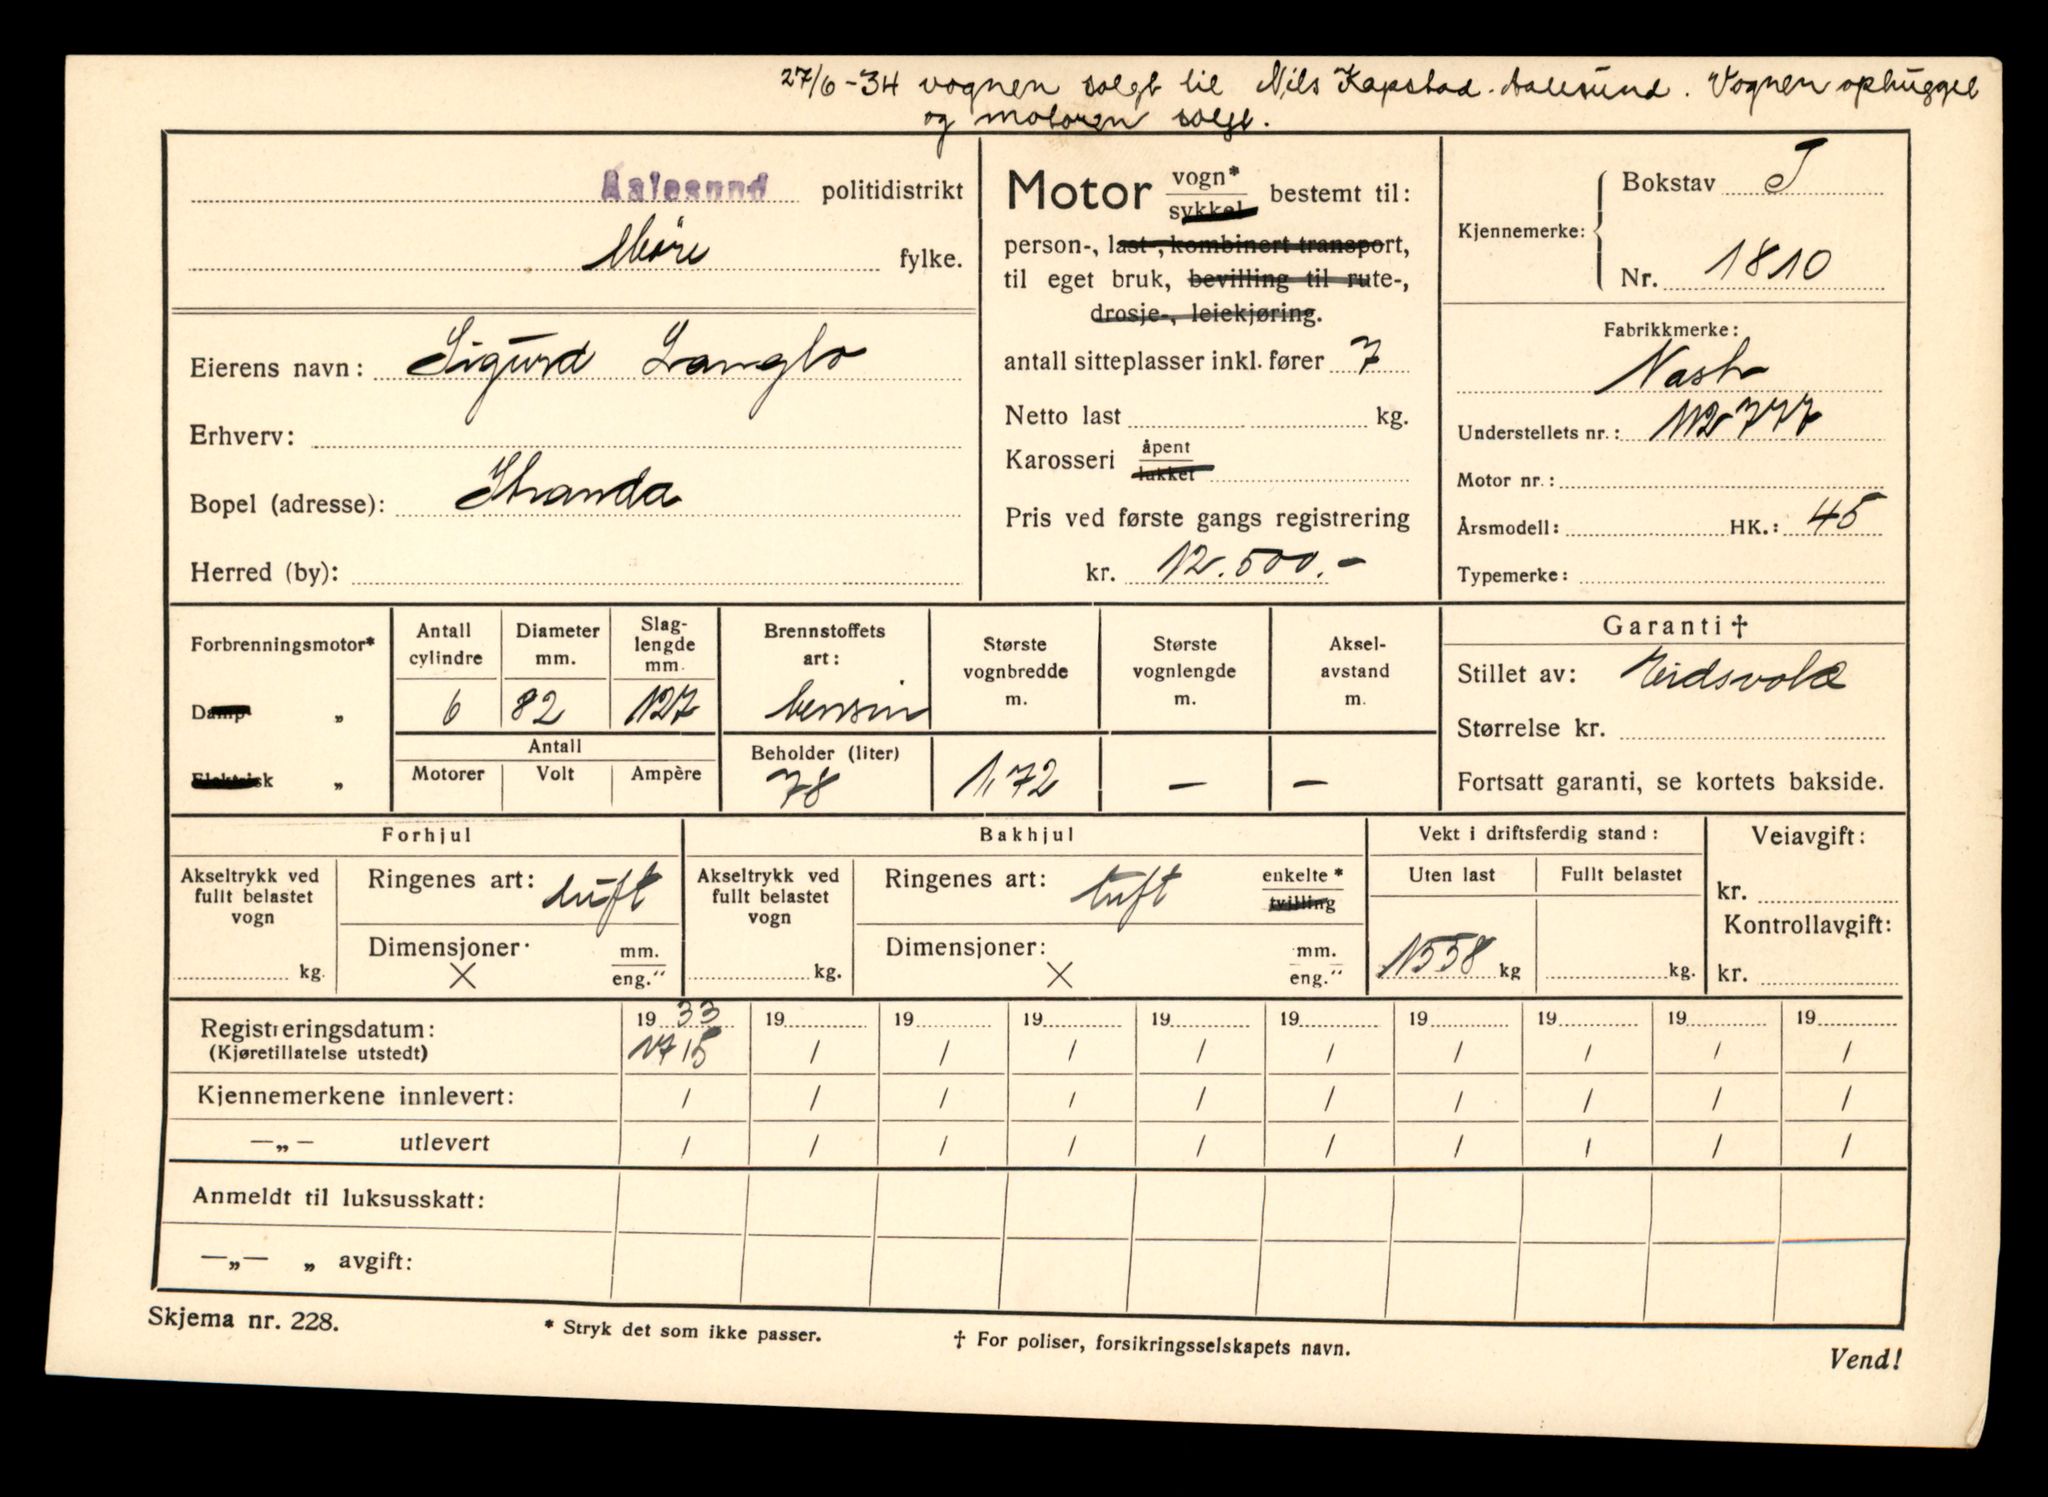 27/6-34 vognen solgt til Nils Kapstad. Aalesund. Vognen ophugget
og motoren solgt.
Aalesund politidistrikt
Möre fylke.
Eierens navn: Sigurd Langlo
Erhverv:
Bopel (adresse): Stranda
Herred (by):
Motor vogn* sykkel bestemt til:
person-, last-, kombinert transport,
til eget bruk, bevilling til rute-,
drosje-, leiekjøring.
antall sitteplasser inkl. fører 7
Netto last kg.
Karosseri åpent lukket
Pris ved første gangs registrering
kr. 12.500.-
Kjennemerke: Bokstav T
Nr. 1810
Fabrikkmerke:
Nash
Understellets nr.: 112777
Motor nr.:
Årsmodell: HK.: 45
Typemerke:
Forbrenningsmotor*
Damp „
Elektrisk „
Antall cylindre
6
Diameter mm.
82
Slaglengde mm.
127
Antall
Motorer Volt Ampère
Brennstoffets art:
bensin
Beholder (liter)
78
Største vognbredde m.
1,72
Største vognlengde m.
—
Akselavstand m.
—
Garanti †
Stillet av: Eidsvold
Størrelse kr.
Fortsatt garanti, se kortets bakside.
Forhjul
Akseltrykk ved
fullt belastet
vogn
kg.
Ringenes art: luft
Dimensjoner: mm.
× eng."
Bakhjul
Akseltrykk ved
fullt belastet
vogn
kg.
Ringenes art: luft enkelte* tvilling
Dimensjoner: mm.
× eng."
Vekt i driftsferdig stand:
Uten last Fullt belastet
1558 kg kg.
Veiavgift:
kr.
Kontrollavgift:
kr.
Registreringsdatum: 1933 19 19 19 19 19 19 19 19 19
(Kjøretillatelse utstedt) 17/5 / / / / / / / / /
Kjennemerkene innlevert: / / / / / / / / / /
—„— utlevert / / / / / / / / / /
Anmeldt til luksusskatt:
—„— „ avgift:
Skjema nr. 228.
* Stryk det som ikke passer.
† For poliser, forsikringsselskapets navn.
Vend!